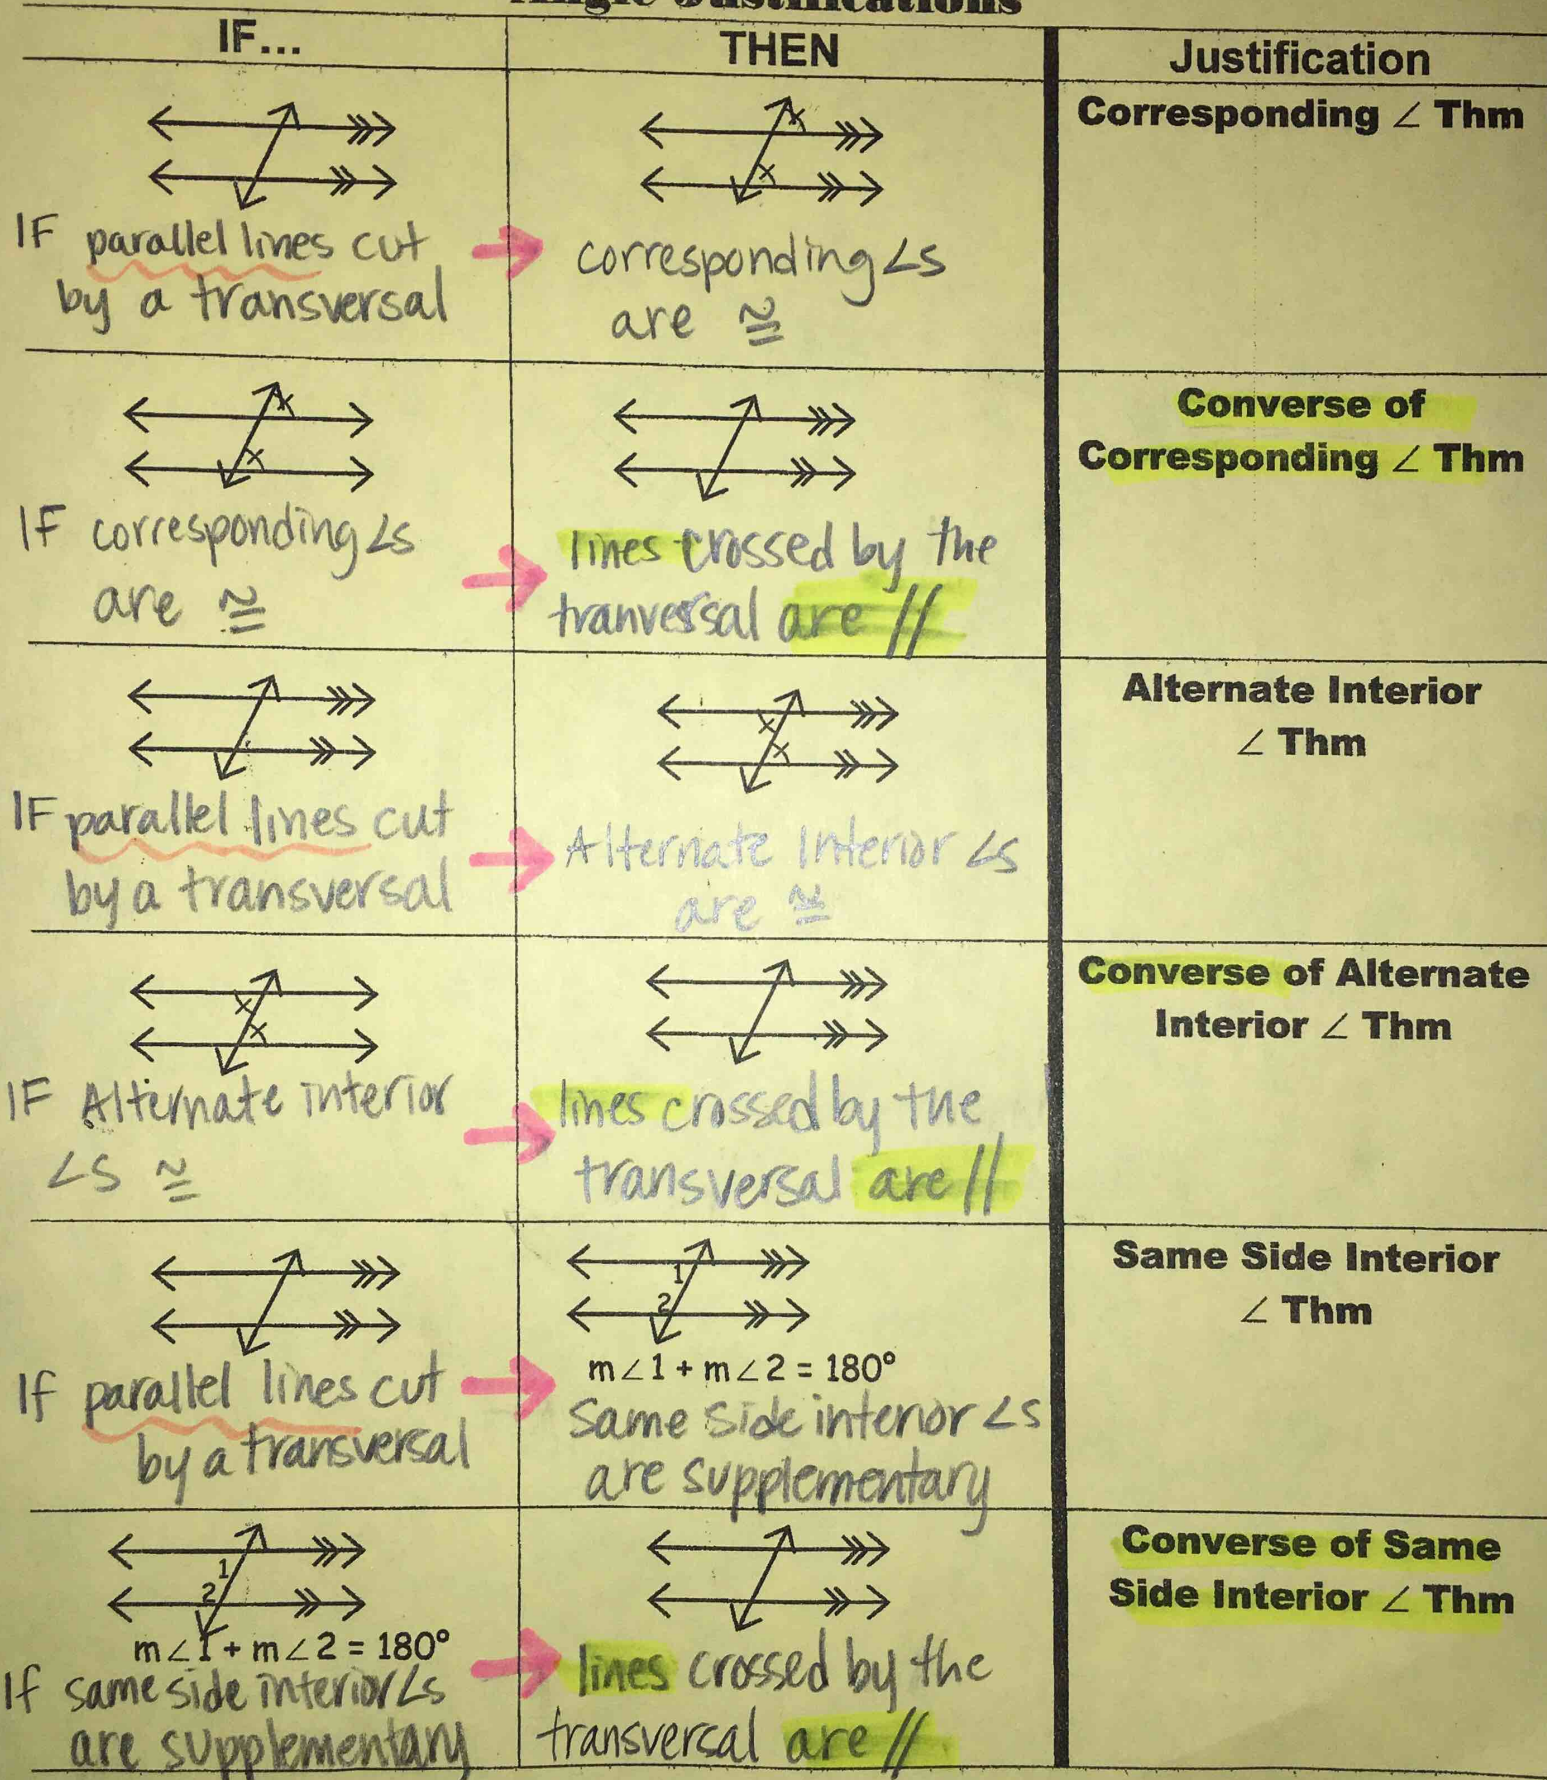 Angle Justifications
IF...
THEN
Justification
IF parallel lines cut
by a transversal
corresponding ∠s
are ≅
Corresponding ∠ Thm
IF corresponding ∠s
are ≅
lines crossed by the
tranversal are //
Converse of
Corresponding ∠ Thm
IF parallel lines cut
by a transversal
Alternate Interior ∠s
are ≅
Alternate Interior
∠ Thm
IF Alternate interior
∠s ≅
lines crossed by the
transversal are //
Converse of Alternate
Interior ∠ Thm
If parallel lines cut
by a transversal
1
2
m∠1 + m∠2 = 180°
Same Side interior ∠s
are supplementary
Same Side Interior
∠ Thm
1
2
m∠1 + m∠2 = 180°
If same side interior ∠s
are supplementary
lines crossed by the
transversal are //
Converse of Same
Side Interior ∠ Thm